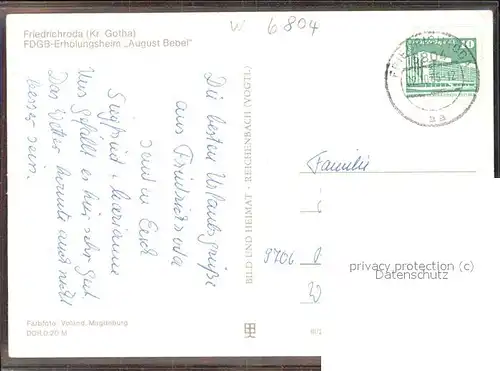 W 6804
Friedrichroda (Kr. Gotha)
FDGB-Erholungsheim „August Bebel"
Die besten Urlaubsgrüße
aus Friedrichroda
senden Euch
Siegfried u. Marianne
Uns gefällt es hier sehr gut.
Das Wetter könnte auch nicht
besser sein.
BILD UND HEIMAT · REICHENBACH (VOGTL)
10
Familie
9706
privacy protection (c)
Datenschutz
Farbfoto: Volland, Magdeburg